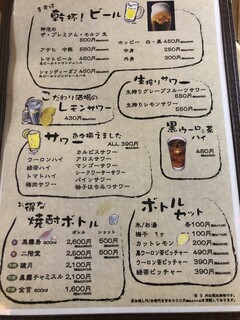 まずは
乾杯!ビール
神泡の
ザ・プレミアム・モルツ 生
500円
アサヒ 中瓶 550円
トマトビール 450円
シャンディーガフ 550円
ホッピー 白・黒 450円
中身 250円
外身 300円
こだわり酒場の
レモンサワー
430円
生搾りサワー
生搾りグレープフルーツサワー
550円
生搾りレモンサワー
550円
サワー 各種揃えました
ALL 390円
ウーロンハイ
緑茶ハイ
トマトハイ
梅肉サワー
カルピスサワー
アロエサワー
マンゴーサワー
シークワーサーサワー
パインサワー
柚子はちみつサワー
黒ウーロン茶
ハイ
480円
お得な
焼酎ボトル
ボトル ショット
黒霧島 900ml 2,600円 500円
二階堂 2,500円 500円
睦月 2,100円 380円
黒霧チャミスル 2,100円 380円
金宮 600ml 1,600円
ボトル
セット
氷/お湯 各100円
梅干 1ヶ 100円
カットレモン 200円
黒ウーロン茶ピッチャー 490円
ウーロン茶ピッチャー 390円
緑茶ピッチャー 390円